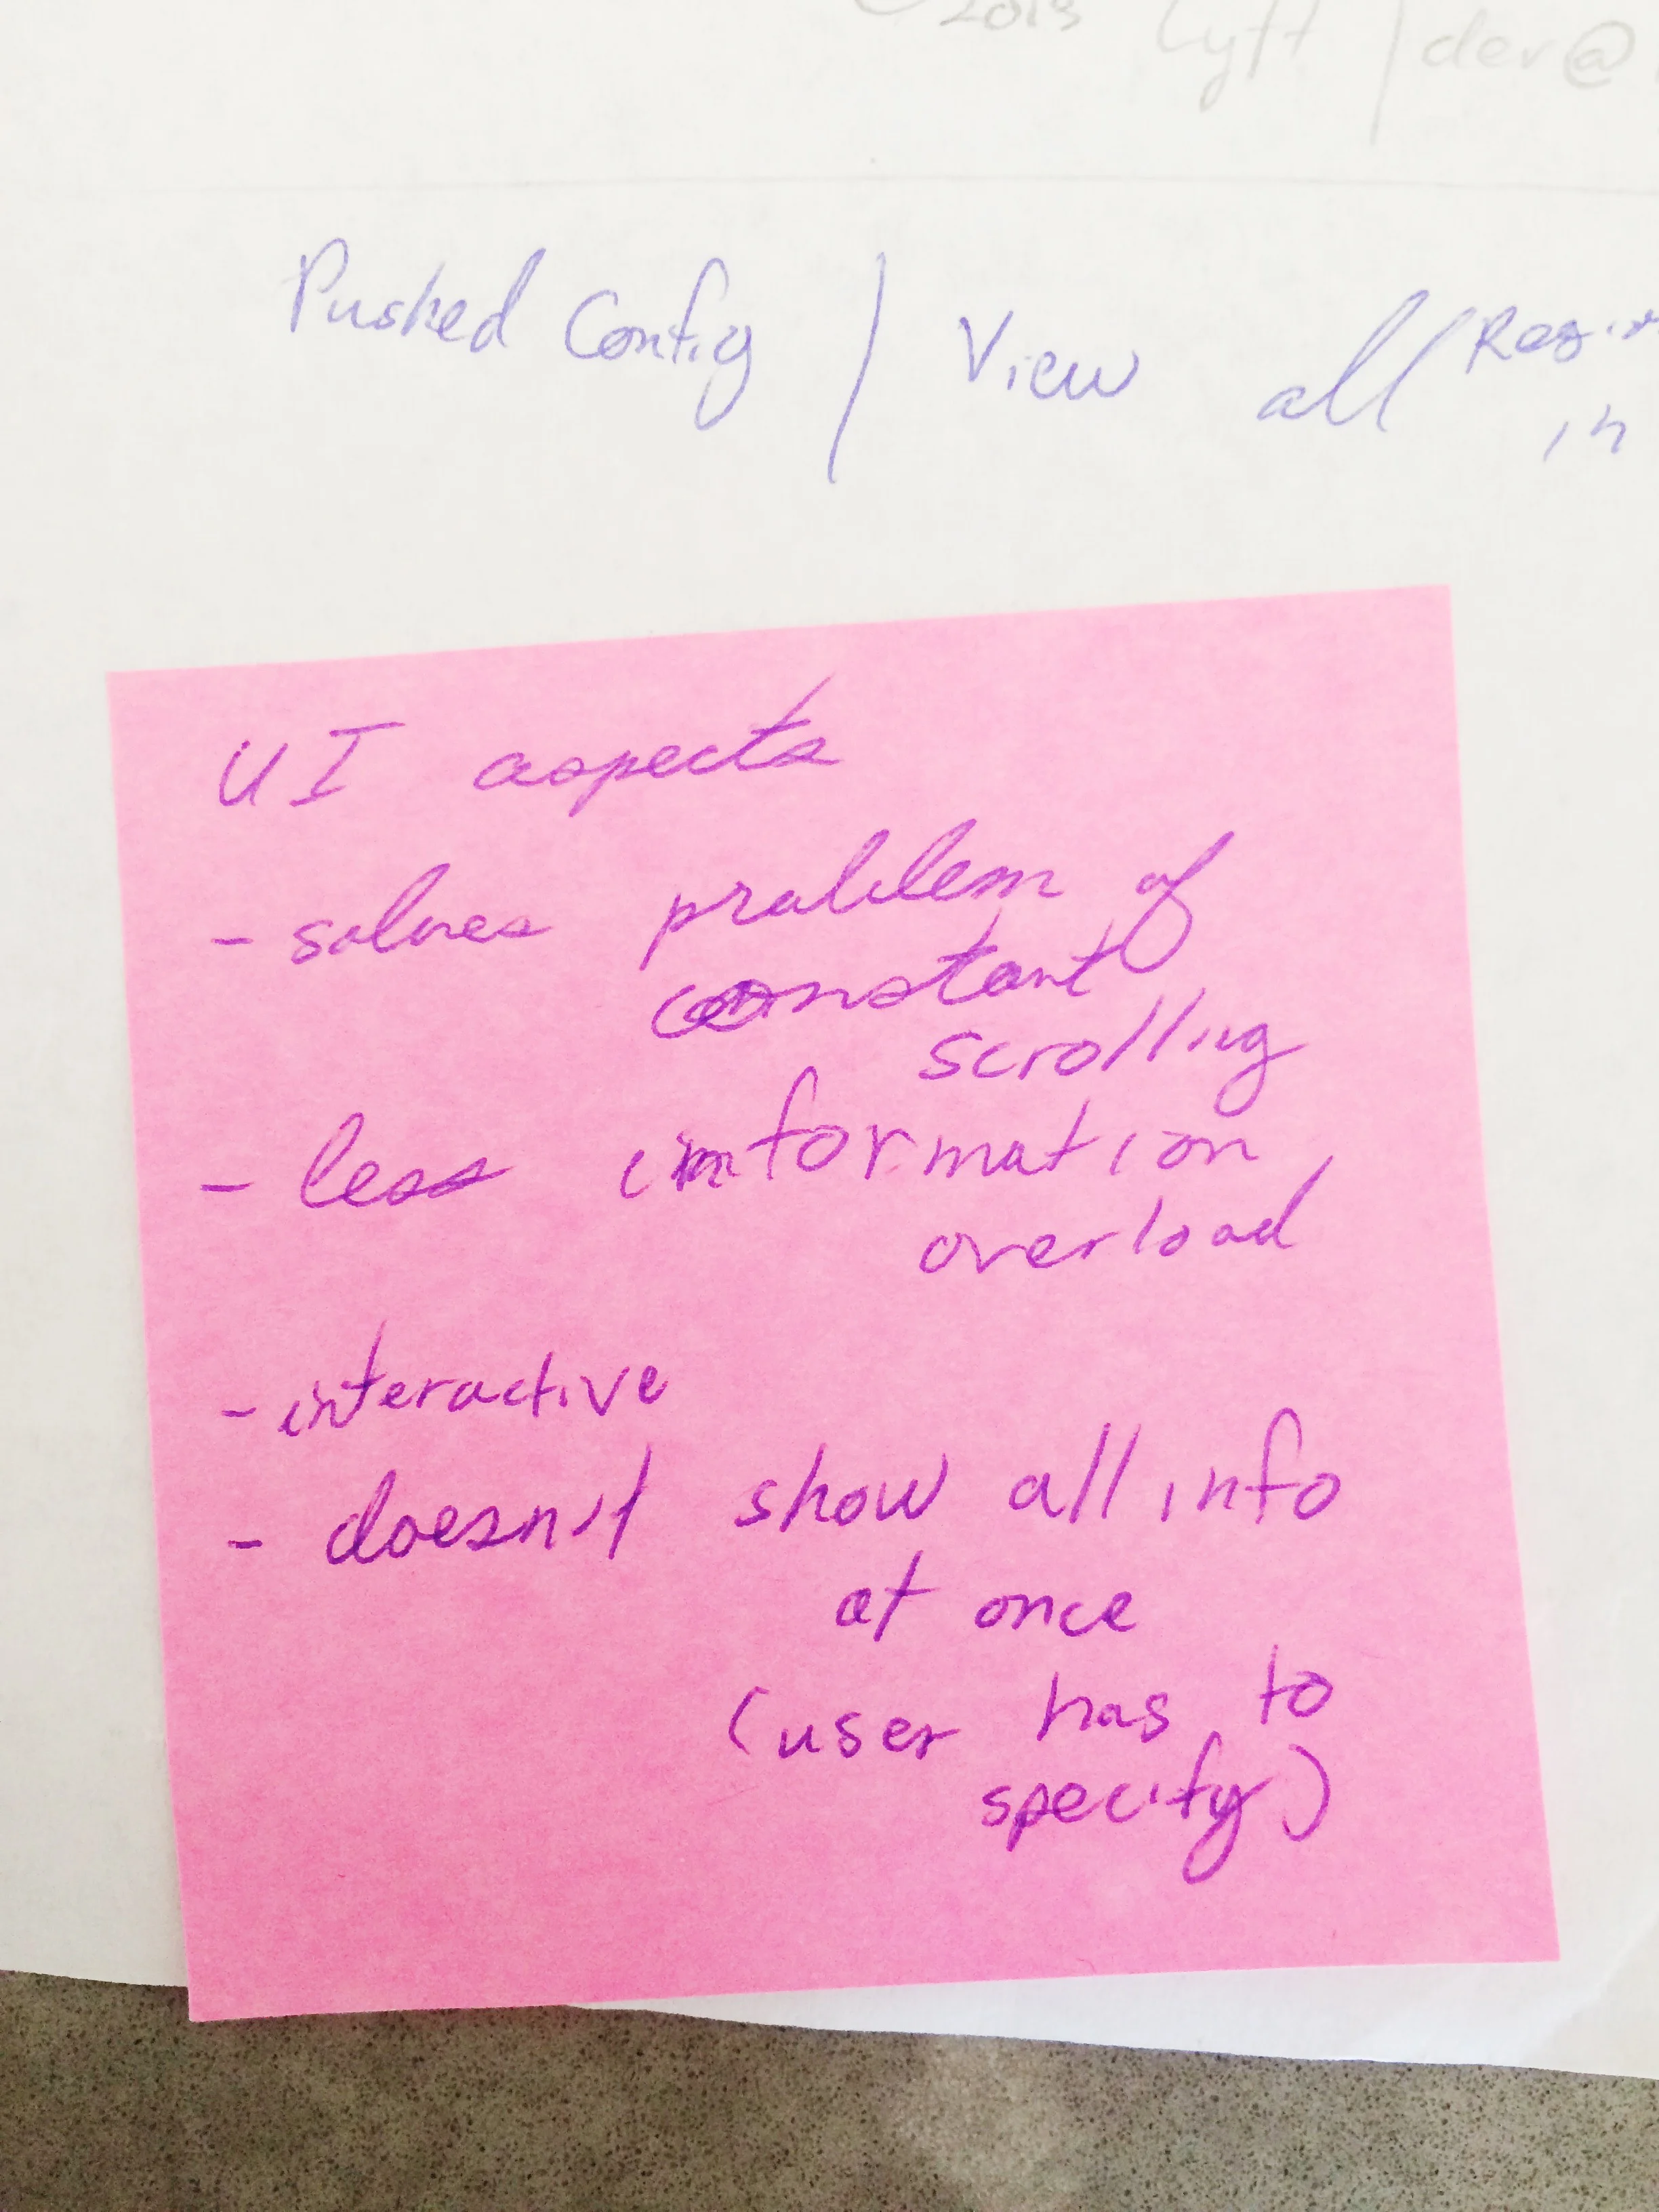 2019 Lyft / dev@
Pushed Config / View all
in
UI aspects
- solves problem of
constant
scrolling
- less information
overload
- interactive
- doesn't show all info
at once
(user has to
specify)